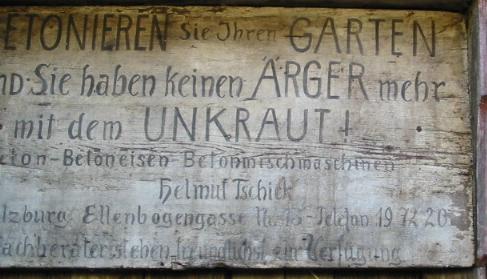 ETONIEREN Sie Ihren GARTEN
nd Sie haben keinen ÄRGER mehr
mit dem UNKRAUT!
eton-Betoneisen-Betonmischmaschinen
Helmut Tschick
lzburg, Ellenbogengasse Nr. 15-Telefon 19 72 20
achberater stehen freundlichst zur Verfügung